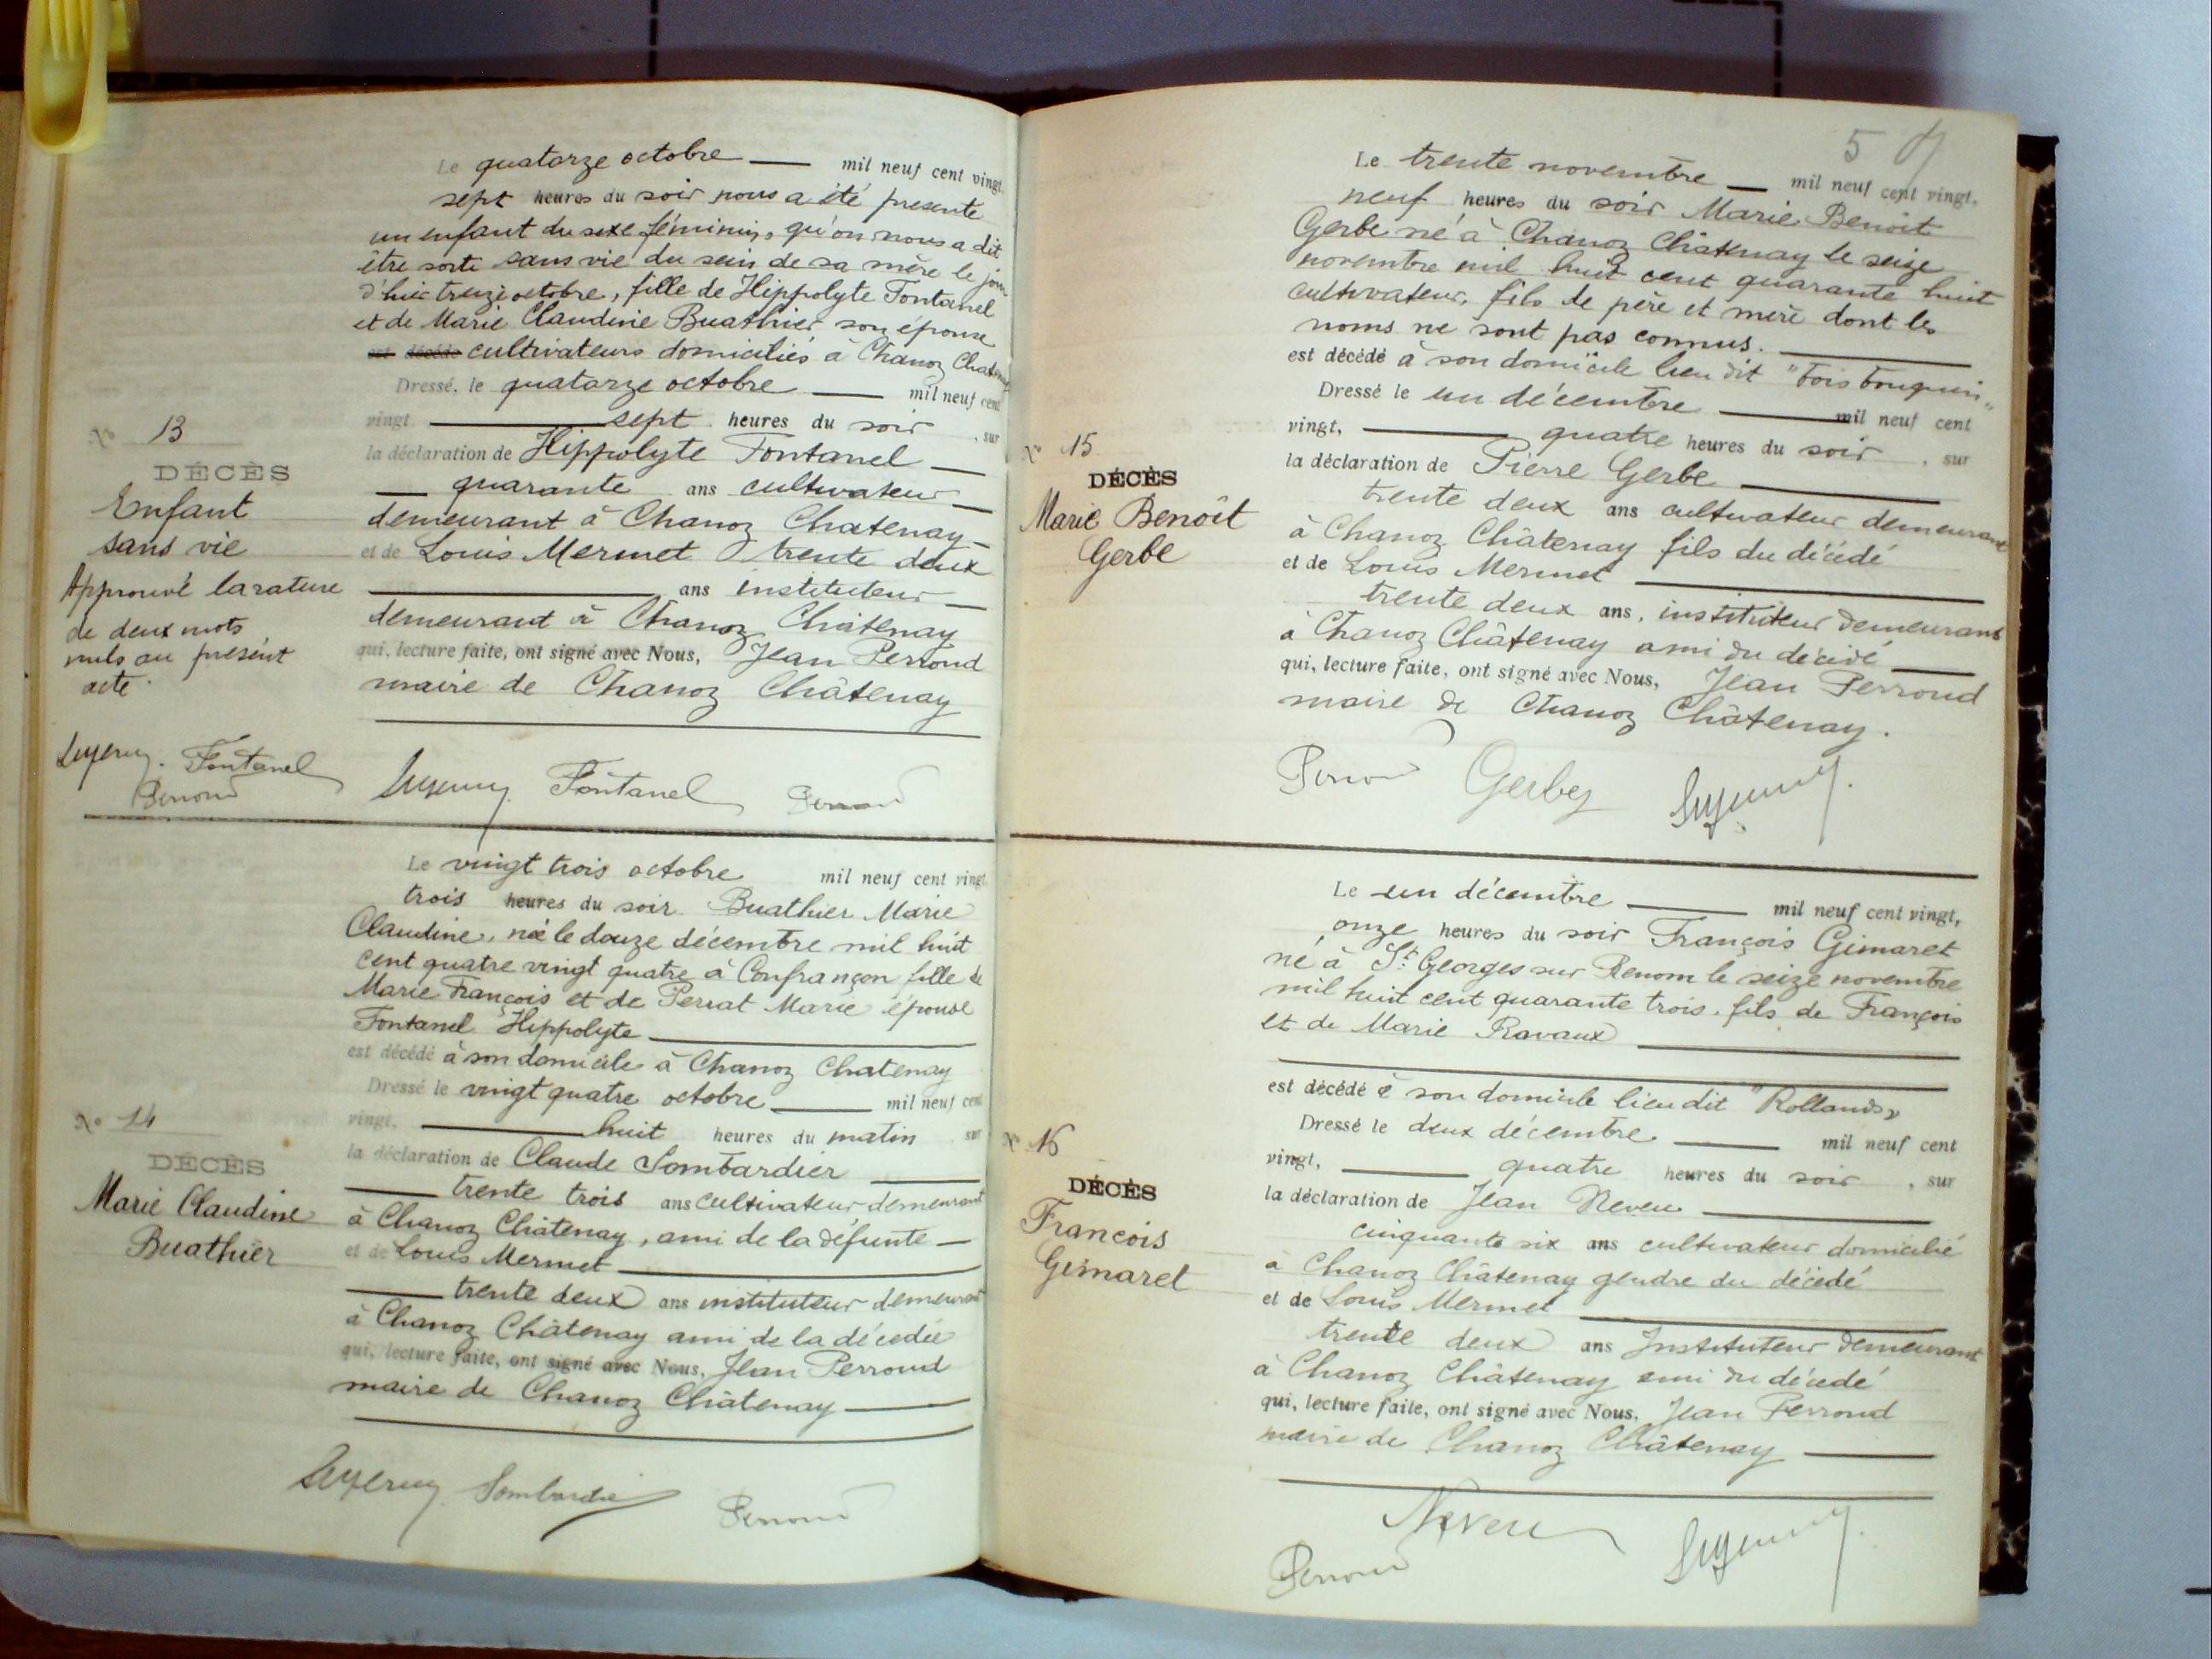 Le quatorze octobre mil neuf cent vingt
sept heures du soir nous a été présenté
un enfant du sexe féminin, qu'on nous a dit
être sorti sans vie du sein de sa mère le jour
d'hier treize octobre, fille de Hippolyte Fontanel
et de Marie Claudine Buathier son épouse
est décédé cultivateurs domiciliés à Chanoz
Dressé, le quatorze octobre mil neuf cent
vingt sept heures du soir, sur
la déclaration de Hippolyte Fontanel
quarante ans cultivateur
demeurant à Chanoz Chatenay
et de Louis Mermet trente deux
ans instituteur
demeurant à Chanoz Châtenay
qui, lecture faite, ont signé avec Nous, Jean Perroud
maire de Chanoz Châtenay
N° 13
DÉCÈS
Enfant
sans vie
Approuvé la rature
de deux mots
nuls au présent
acte.
Fontanel
Perroud
Fontanel Perroud
Le vingt trois octobre mil neuf cent vingt
trois heures du soir Buathier Marie
Claudine, née le douze décembre mil huit
cent quatre vingt quatre à Confrançon fille de
Marie François et de Perrat Marie épouse
Fontanel Hippolyte
est décédé à son domicile à Chanoz Chatenay
Dressé le vingt quatre octobre mil neuf cent
vingt, huit heures du matin sur
la déclaration de Claude Sombardier
trente trois ans cultivateur demeurant
à Chanoz Châtenay, ami de la défunte
et de Louis Mermet
trente deux ans instituteur demeurant
à Chanoz Châtenay ami de la décédée
qui, lecture faite, ont signé avec Nous, Jean Perroud
maire de Chanoz Châtenay
N° 14
DÉCÈS
Marie Claudine
Buathier
Sombardier Perroud
5
Le trente novembre mil neuf cent vingt,
neuf heures du soir Marie Benoît
Gerbe né à Chanoz Châtenay le seize
novembre mil huit cent quarante huit
cultivateur, fils de père et mère dont les
noms ne sont pas connus.
est décédé à son domicile lieu dit
Dressé le un décembre mil neuf cent
vingt, quatre heures du soir, sur
la déclaration de Pierre Gerbe
trente deux ans cultivateur demeurant
à Chanoz Châtenay fils du décédé
et de Louis Mermet
trente deux ans, instituteur demeurant
à Chanoz Châtenay ami du décédé
qui, lecture faite, ont signé avec Nous, Jean Perroud
maire de Chanoz Châtenay.
N° 15
DÉCÈS
Marie Benoît
Gerbe
Perroud
Le un décembre mil neuf cent vingt,
onze heures du soir François Gimaret
né à St Georges sur Renom le seize novembre
mil huit cent quarante trois, fils de François
et de Marie Ravaux
est décédé à son domicile lieu dit "Rollands"
Dressé le deux décembre mil neuf cent
vingt, quatre heures du soir, sur
la déclaration de Jean Neveu
cinquante six ans cultivateur domicilié
à Chanoz Châtenay gendre du décédé
et de Louis Mermet
trente deux ans Instituteur demeurant
à Chanoz Châtenay ami du décédé
qui, lecture faite, ont signé avec Nous, Jean Perroud
maire de Chanoz Châtenay
N° 16
DÉCÈS
François
Gimaret
Neveu
Perroud